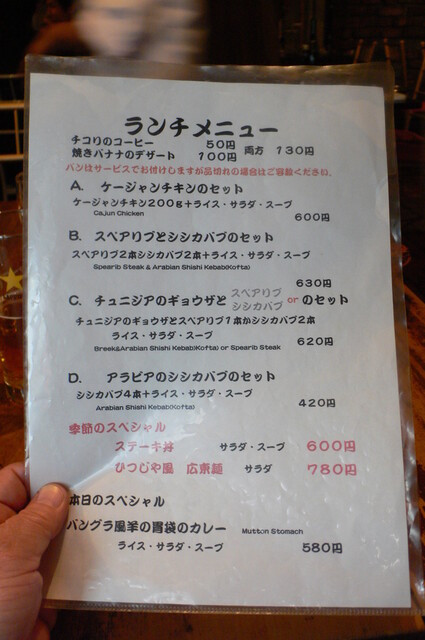 ランチメニュー
チコリのコーヒー 50円 両方 130円
焼きバナナのデザート 100円
パンはサービスでお付けしますが品切れの場合はご容赦ください。
A. ケージャンチキンのセット
ケージャンチキン200g+ライス・サラダ・スープ
Cajun Chicken 600円
B. スペアリブとシシカバブのセット
スペアリブ2本シシカバブ2本+ライス・サラダ・スープ
Spearib Steak & Arabian Shishi Kebab(Kofta)
630円
C. チュニジアのギョウザと スペアリブ シシカバブ or のセット
チュニジアのギョウザとスペアリブ1本かシシカバブ2本
ライス・サラダ・スープ 620円
Breek&Arabian Shishi Kebab(Kofta) or Spearib Steak
D. アラビアのシシカバブのセット
シシカバブ4本+ライス・サラダ・スープ
Arabian Shishi Kebab(Kofta) 420円
季節のスペシャル
ステーキ丼 サラダ・スープ 600円
ひつじや風 広東麺 サラダ 780円
本日のスペシャル
バングラ風羊の胃袋のカレー Mutton Stomach
ライス・サラダ・スープ 580円